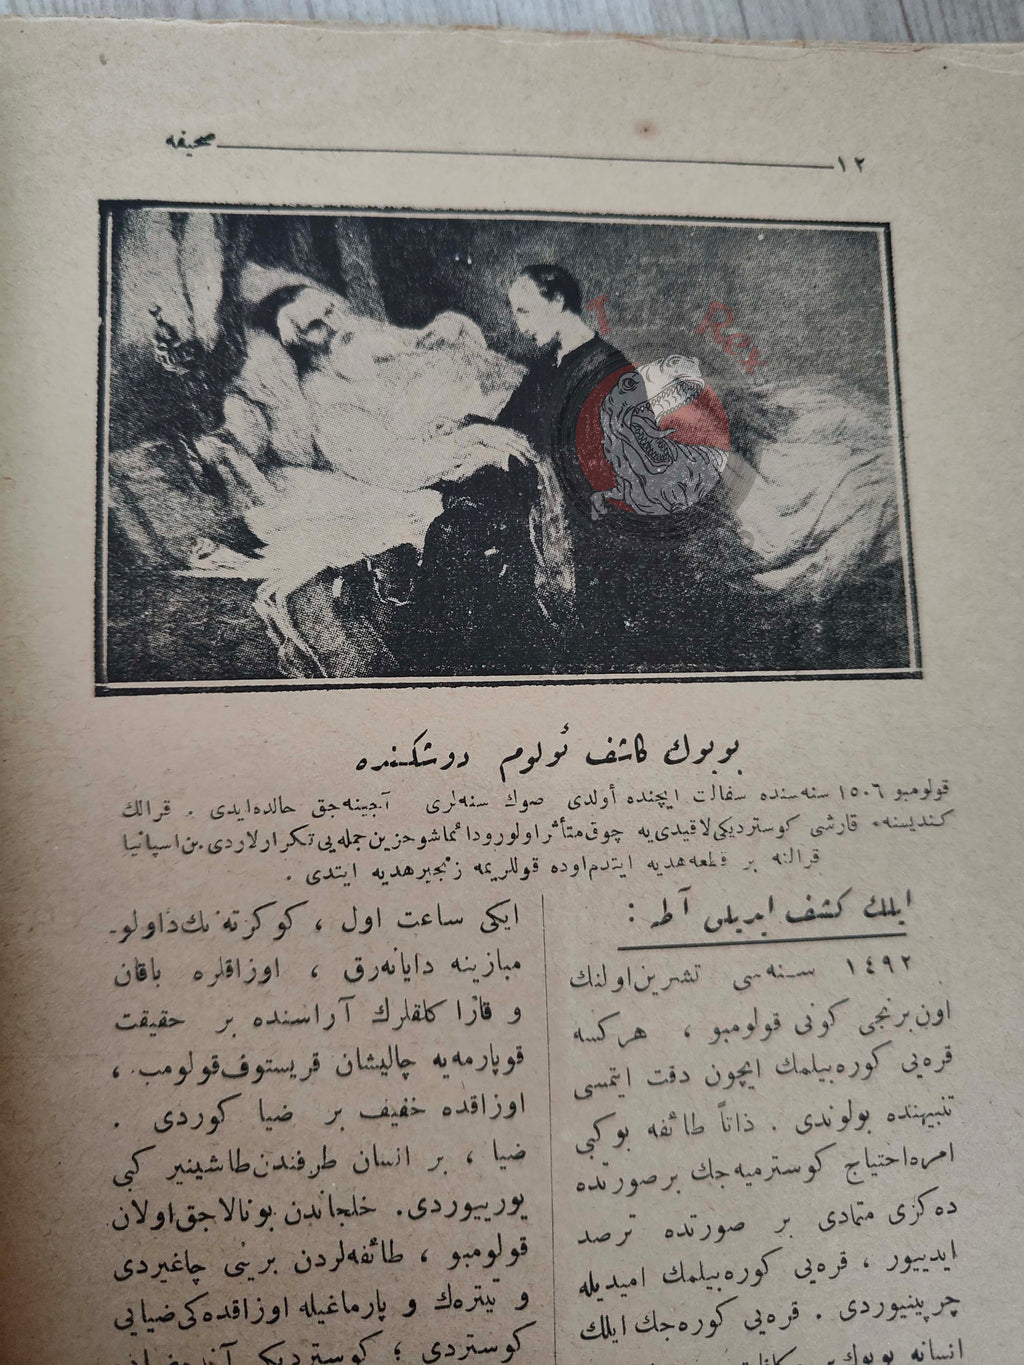 صحيفه
١٢
بويوك كاشف ئولوم دوشكنده
قولومبو ١٥٠٦ سنه‌سنده سفالت ايچنده أولدى صوك سنه‌لرى آجينه‌جق حالده‌ايدى . قرالك
كنديسنه قارشى كوسترديكى لاقيدى‌يه چوق متأثر اولور و دائما شو حزين جمله‌يى تكرارلاردى . بن اسپانيا
قرالنه بر قطعه هديه ايتدم اوده قوللريمه زنجير هديه ايتدى .
ايلك كشف ايديلن آطه :
١٤٩٢ سنه‌سى تشرين اولنك
اون برنجى كونى قولومبو ، هركسه
قره‌يى كوره‌بيلمك ايچون دقت ايتمسى
تنبيهنده بولوندى . ذاتاً طائفه بوكبى
امره احتياج كوسترميه‌جك بر صورتده
ده‌كزى متمادى بر صورتده ترصد
ايدييور ، قره‌يى كوره‌بيلمك اميديله
چرپينيوردى . قره‌يى كوره‌جك ايلك
انسانه بويوك بر
ايكى ساعت اول ، كوكرته‌نك داولو-
مبازينه دايانه‌رق ، اوزاقلره باقان
و قارا كلقلرك آراسنده بر حقيقت
قوپارمه‌يه چاليشان قريستوف قولومب ،
اوزاقده خفيف بر ضيا كوردى .
ضيا ، بر انسان طرفندن طاشينير كبى
يورييوردى . خلجاندن بونالاجق اولان
قولومبو ، طائفه‌لردن برينى چاغيردى
و تيتره‌ك و پارماغيله اوزاقده‌كى ضيايى
كوستردى ؛ كوسترديكى